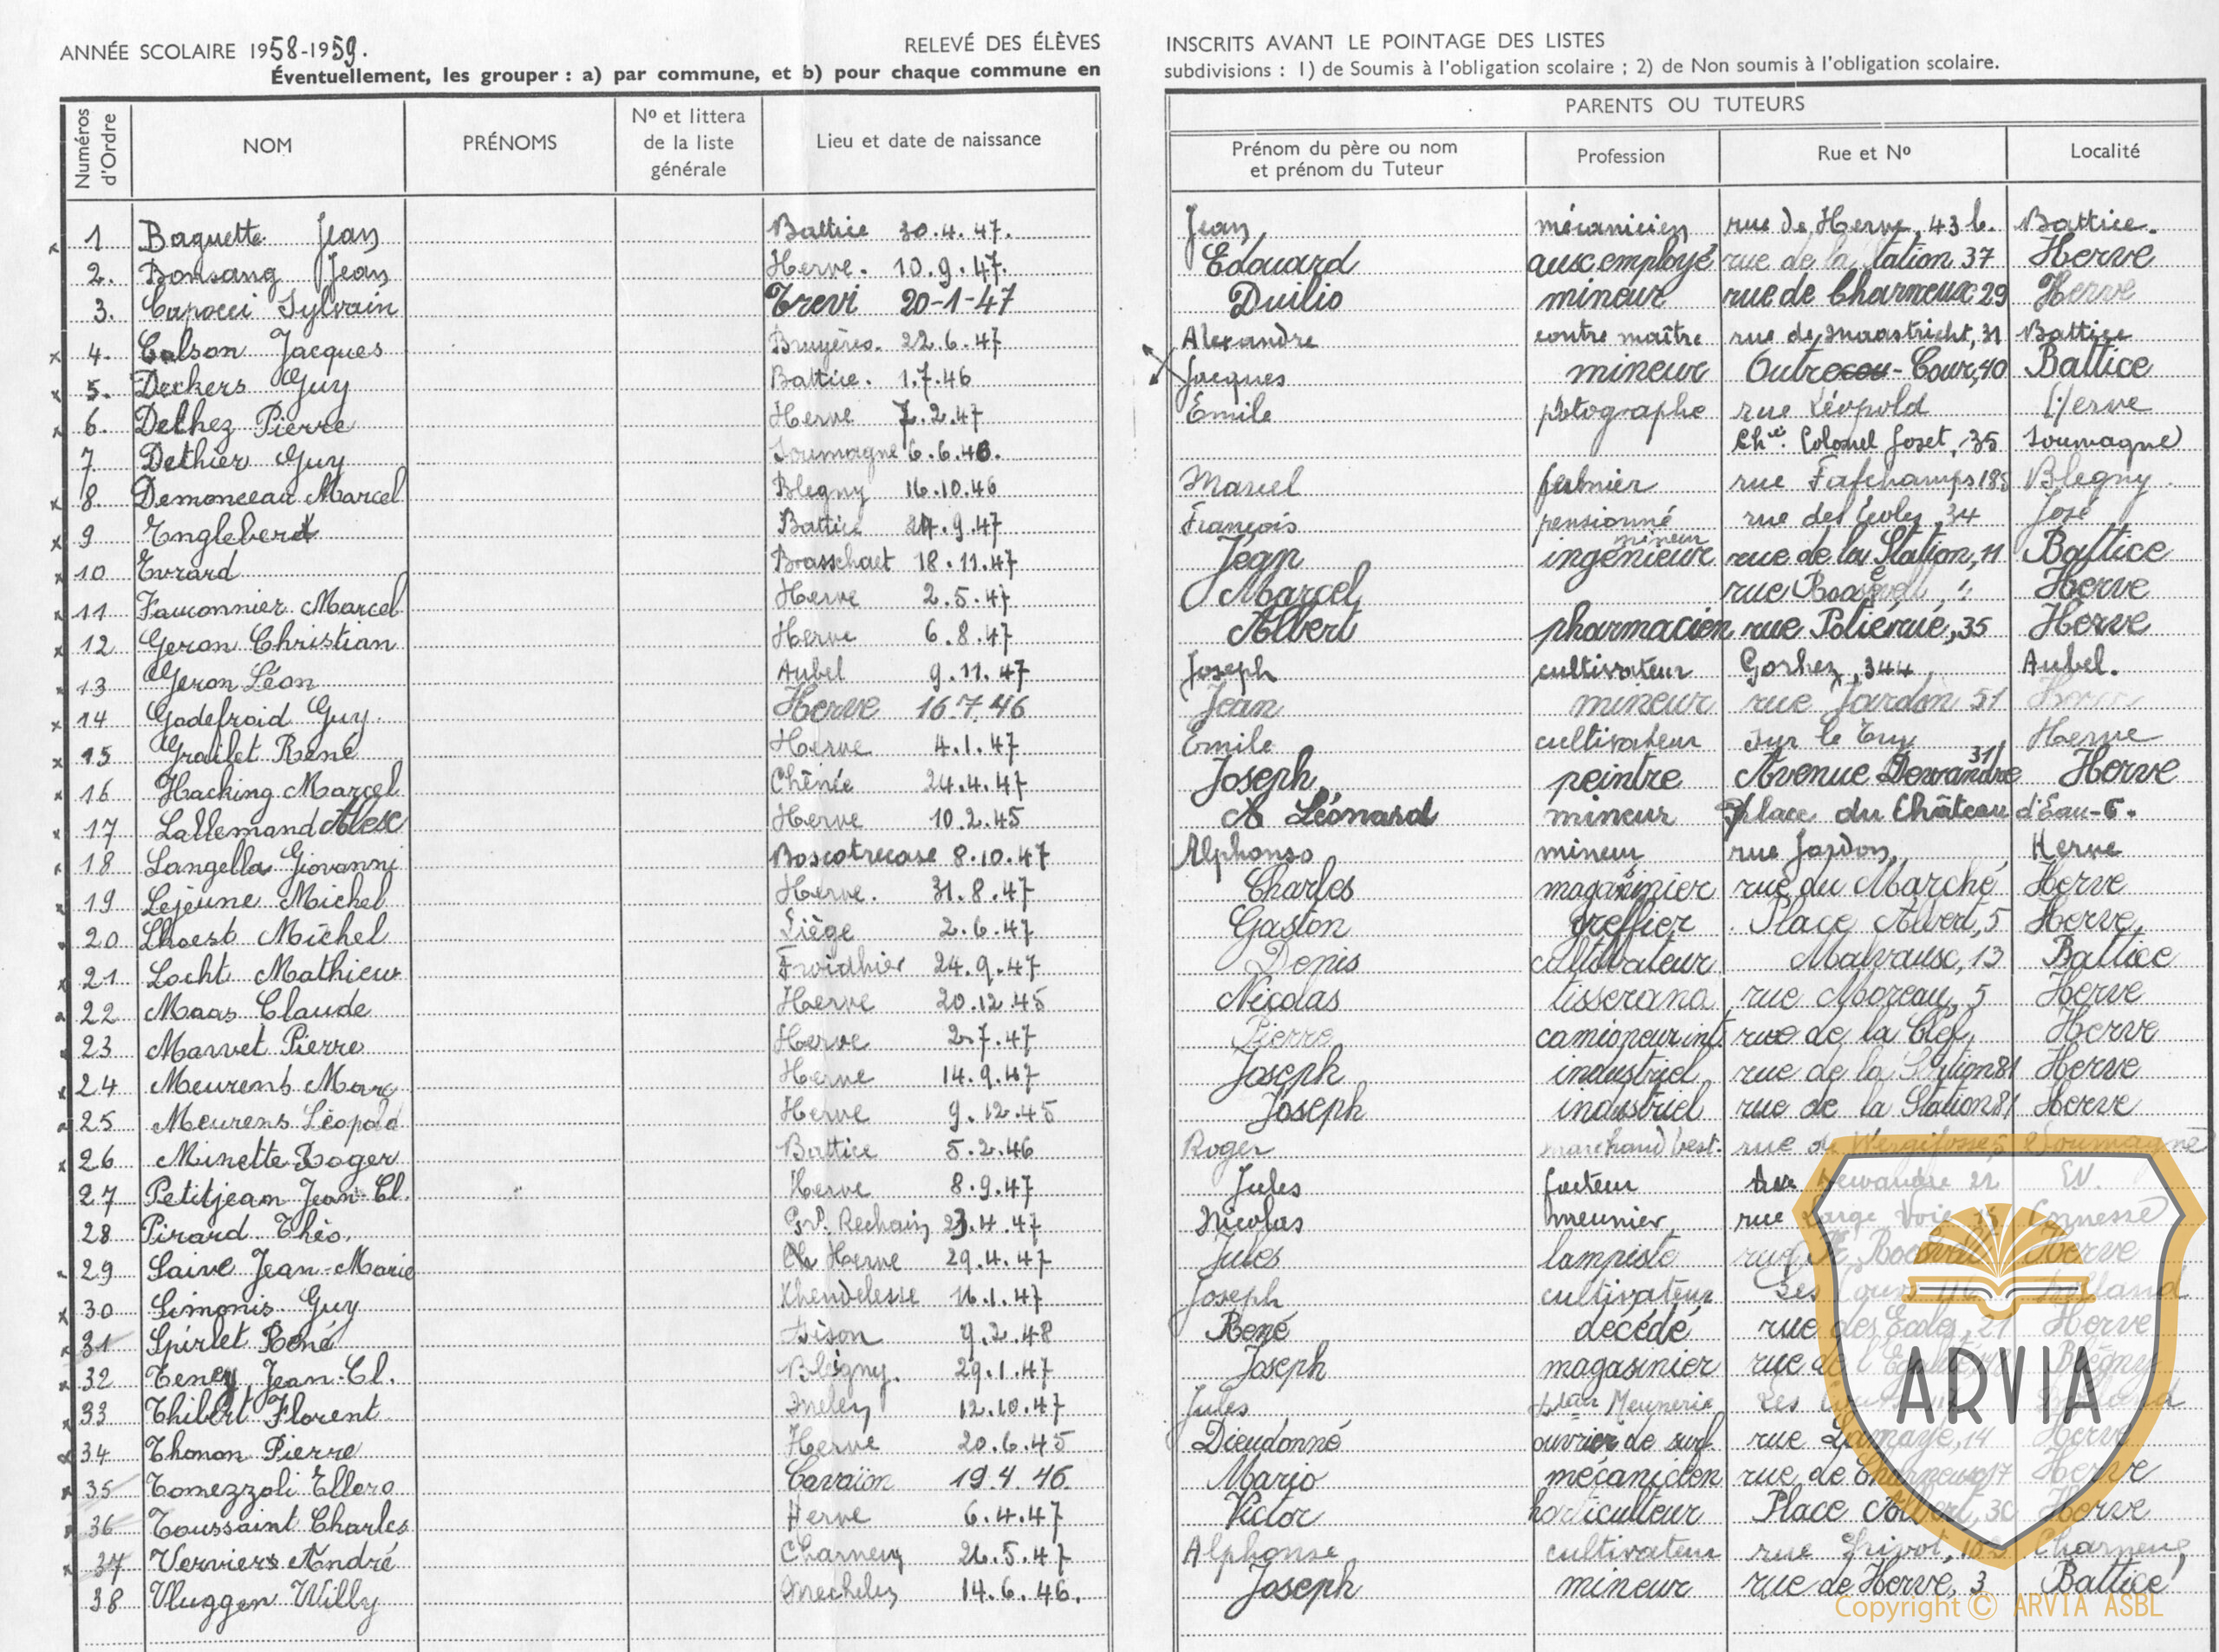 ANNÉE SCOLAIRE 1958-1959.
RELEVÉ DES ÉLÈVES
Éventuellement, les grouper : a) par commune, et b) pour chaque commune en
INSCRITS AVANT LE POINTAGE DES LISTES
subdivisions : 1) de Soumis à l'obligation scolaire ; 2) de Non soumis à l'obligation scolaire.
PARENTS OU TUTEURS
Numéros d'Ordre NOM PRÉNOMS Nº et littera de la liste générale Lieu et date de naissance Prénom du père ou nom et prénom du Tuteur Profession Rue et Nº Localité
1 Baguette Jean Battice 30.4.47. Jean mécanicien rue de Herve, 43 b. Battice.
2. Bonsang Jean Herve. 10.9.47. Edouard aux employé rue de la Station 37 Herve
3. Capocci Sylvain Trevi 20-1-47 Duilio mineur rue de Charneux 29 Herve
4. Colson Jacques Bruyères. 22.6.47 Alexandre contre maître rue de Maastricht, 31 Battice
5. Deckers Guy Battice. 1.7.46 Jacques mineur Outre - Cour, 40 Battice
6. Delhez Pierre Herve 7.2.47 Emile photographe rue Léopold Herve
7 Dethier Guy Soumagne 6.6.46. Chée. Colonel Joset, 35 Soumagne
8. Demonceau Marcel Blegny 16.10.46 Marcel fermier rue Fafchamps Blegny
9 Englebert Battice 9.47 François pensionné rue des Ecoles 34 José
10 Evrard Brasschaet 18.11.47 Jean ingénieur mineur rue de la Station, 11 Battice
11 Fauconnier Marcel Herve 2.5.47 Marcel rue Herve
12 Geron Christian Herve 6.8.47 Albert pharmacien rue 35 Herve
13 Geron Léon Aubel 9.11.47 Joseph cultivateur Gorhez, 344 Aubel.
14 Godefroid Guy. Herve 16.7.46 Jean mineur rue Jardon 51
15 Grailet René Herve 4.1.47 Emile cultivateur sur le Herve
16 Hacking Marcel Chênée 24.4.47 Joseph peintre Avenue Dewandre 31 Herve
17 Lallemand Alex Herve 10.2.45 Léonard mineur place du Château d'Eau-6.
18 Langella Giovanni Boscotrecase 8.10.47 Alphonso mineur rue Jardon, Herve
19 Lejeune Michel Herve. 31.8.47 Charles magasinier rue du Marché Herve
20 Lhoest Michel Liège 2.6.47 Gaston greffier Place Albert, 5 Herve
21 Locht Mathieu Froidthier 24.9.47 Denis cultivateur Malvaux, 13 Battice
22 Maas Claude Herve 20.12.45 Nicolas tisserand rue Moreau, 5 Herve
23 Marvet Pierre Herve 2.7.47 Pierre camioneur int. rue de la Clef, Herve
24 Meurens Marc Herve 14.9.47 Joseph industriel rue de la Station 81 Herve
25 Meurens Léopold Herve 9.12.45 Joseph industriel rue de la Station 81 Herve
26 Minette Roger Battice 5.2.46 Roger marchand best. rue de Wergifosse, 5 Soumagne
27 Petitjean Jean-Cl. Herve 8.9.47 Jules facteur Dewandre 22 EV.
28 Pirard Théo. Gd. Rechain 23.4.47 Nicolas meunier rue Large Voie 15
29 Saive Jean-Marie Herve 29.4.47 Jules lampiste rue Herve
30 Simonis Guy Xhendelesse 16.1.47 Joseph cultivateur Les Cours
31 Spirlet René Dison 9.2.48 René décédé rue des Ecoles, 21 Herve
32 Teney Jean-Cl. Blégny. 29.1.47 Joseph magasinier rue de Blégny
33 Thibert Florent 12.10.47 Jules Meunerie Les
34 Thonon Pierre Herve 20.6.45 Dieudonné ouvrier de surf. rue Lamaye, 14 Herve
35 Tomezzoli Ellero Cavaïon 19.4.46. Mario mécanicien rue de Charneux 17 Herve
36 Toussaint Charles Herve 6.4.47 Victor horticulteur Place Albert, 30 Herve
37 Verviers André Charneux 26.5.47 Alphonse cultivateur rue Charneux
38 Vluggen Willy Mechelen 14.6.46. Joseph mineur rue de Herve, 3 Battice
ARVIA
Copyright © ARVIA ASBL